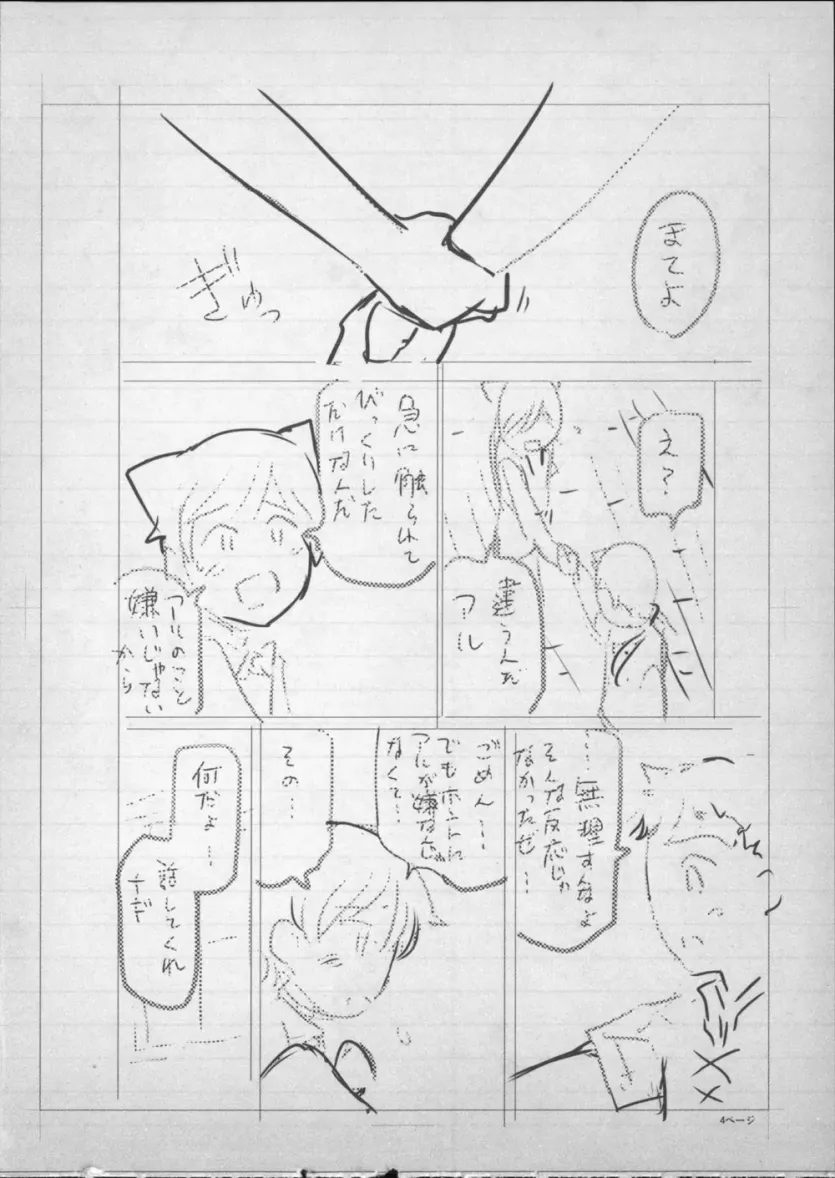 まてよ
ぎゅっ
え？
違うんだ
アル
急に触られて
びっくりした
だけなんだ
アルのこと
嫌いじゃない
から
…無理すんなよ
そんな反応じゃ
なかったぜ…
ごめん…
でもホントに
アルが嫌なんじゃ
なくて…
その…
何だよ…
話してくれ
4ページ